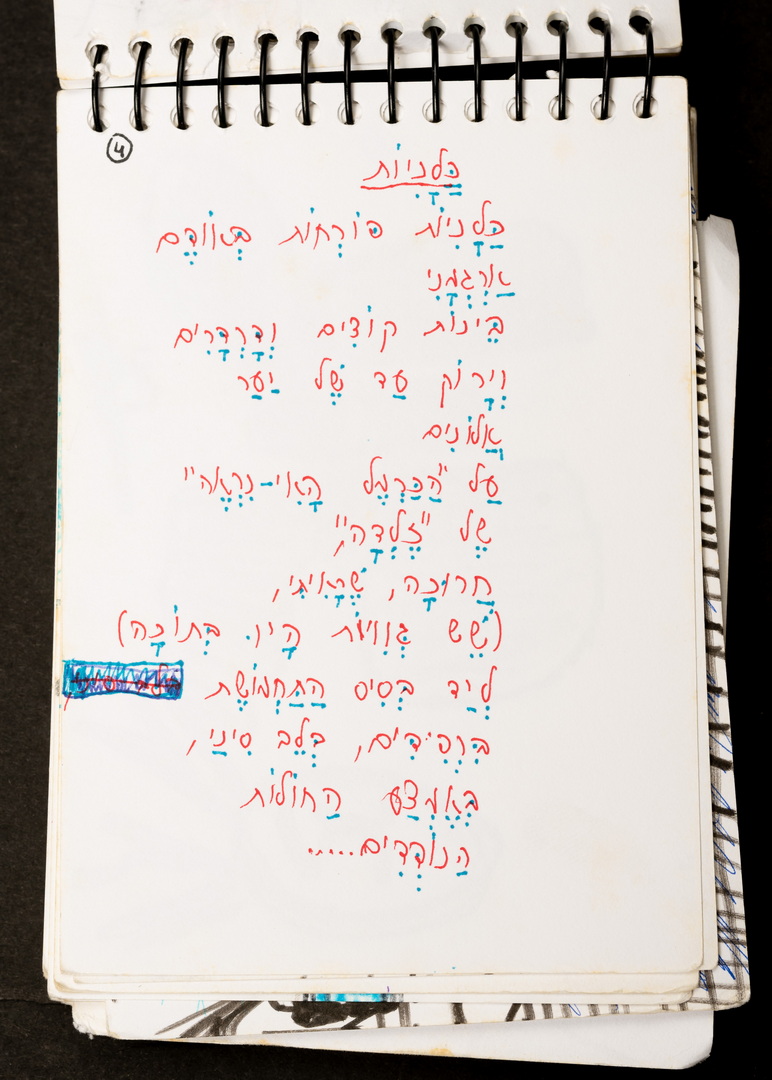 4
כַּלָּנִיּוֹת
כַּלָּנִיּוֹת פּוֹרְחוֹת בְּאוֹדֶם
אַרְגְּמָנִי
בֵּינוֹת קוֹצִים וְדַרְדָּרִים
וְיָרוֹק עַד שֶׁל יַעַר
אַלּוֹנִים
עַל "הַכַּרְמֶל הָאִי-נִרְאֶה"
שֶׁל "זֶלְדָה",
חֲרוּכָה, שֶׁרָאִיתִי,
(שֵׁשׁ גְּוִויּוֹת הָיוּ בְּתוֹכָהּ)
לְיַד בְּסִיס הַתַּחְמוֹשֶׁת
בִּרְפִידִים, בְּלֵב סִינַי,
בְּאֶמְצַע הַחוֹלוֹת
הַנּוֹדְדִים.....